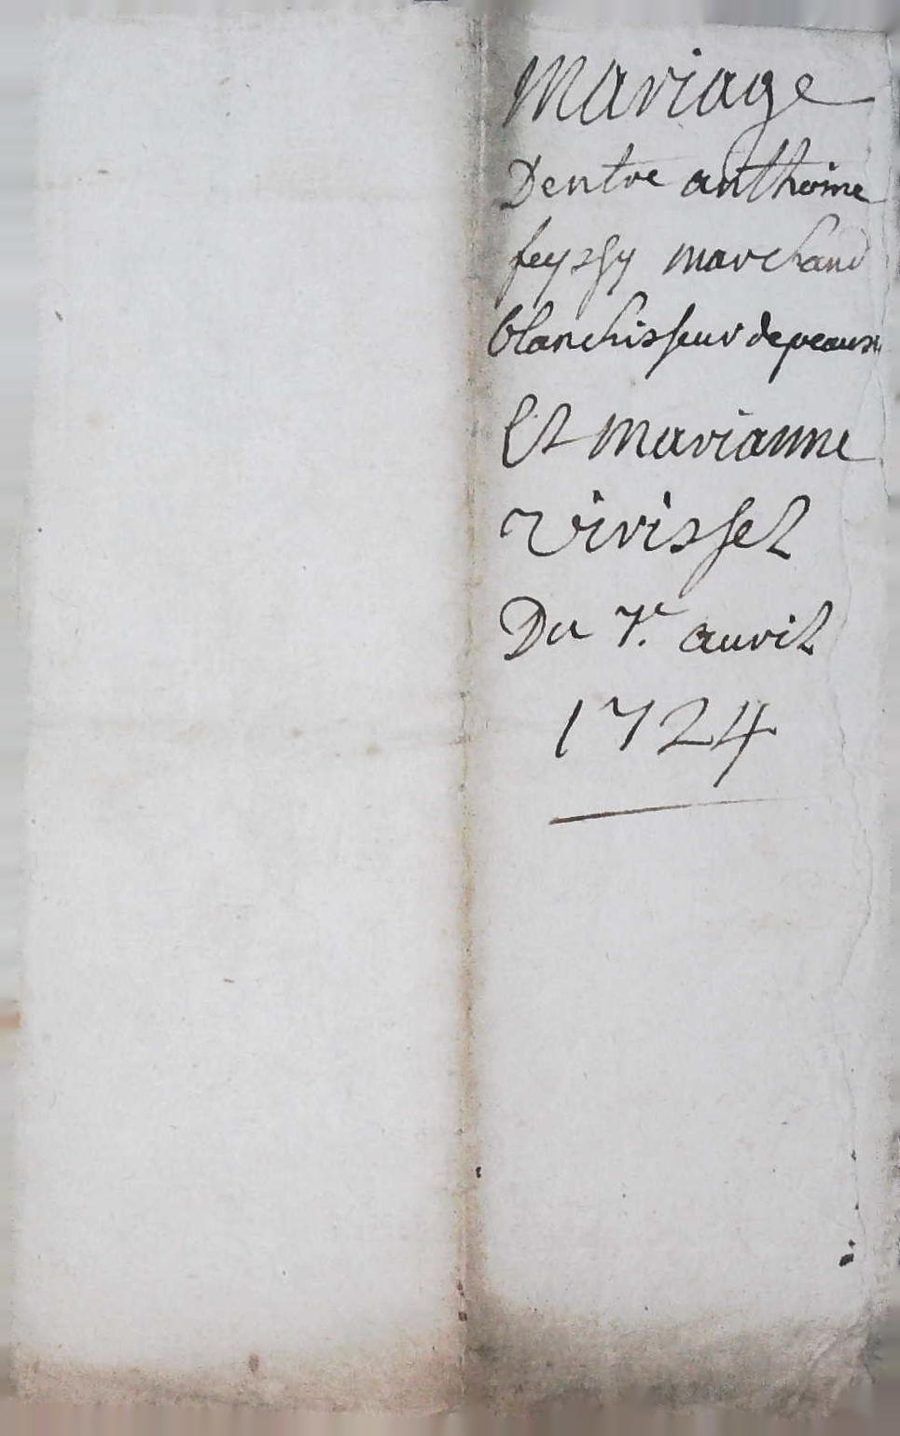 Mariage
Dentre anthoine
feyssy marchand
blanchisseur de peaux
Et marianne
vivisset
Du 7.e auvil
1724